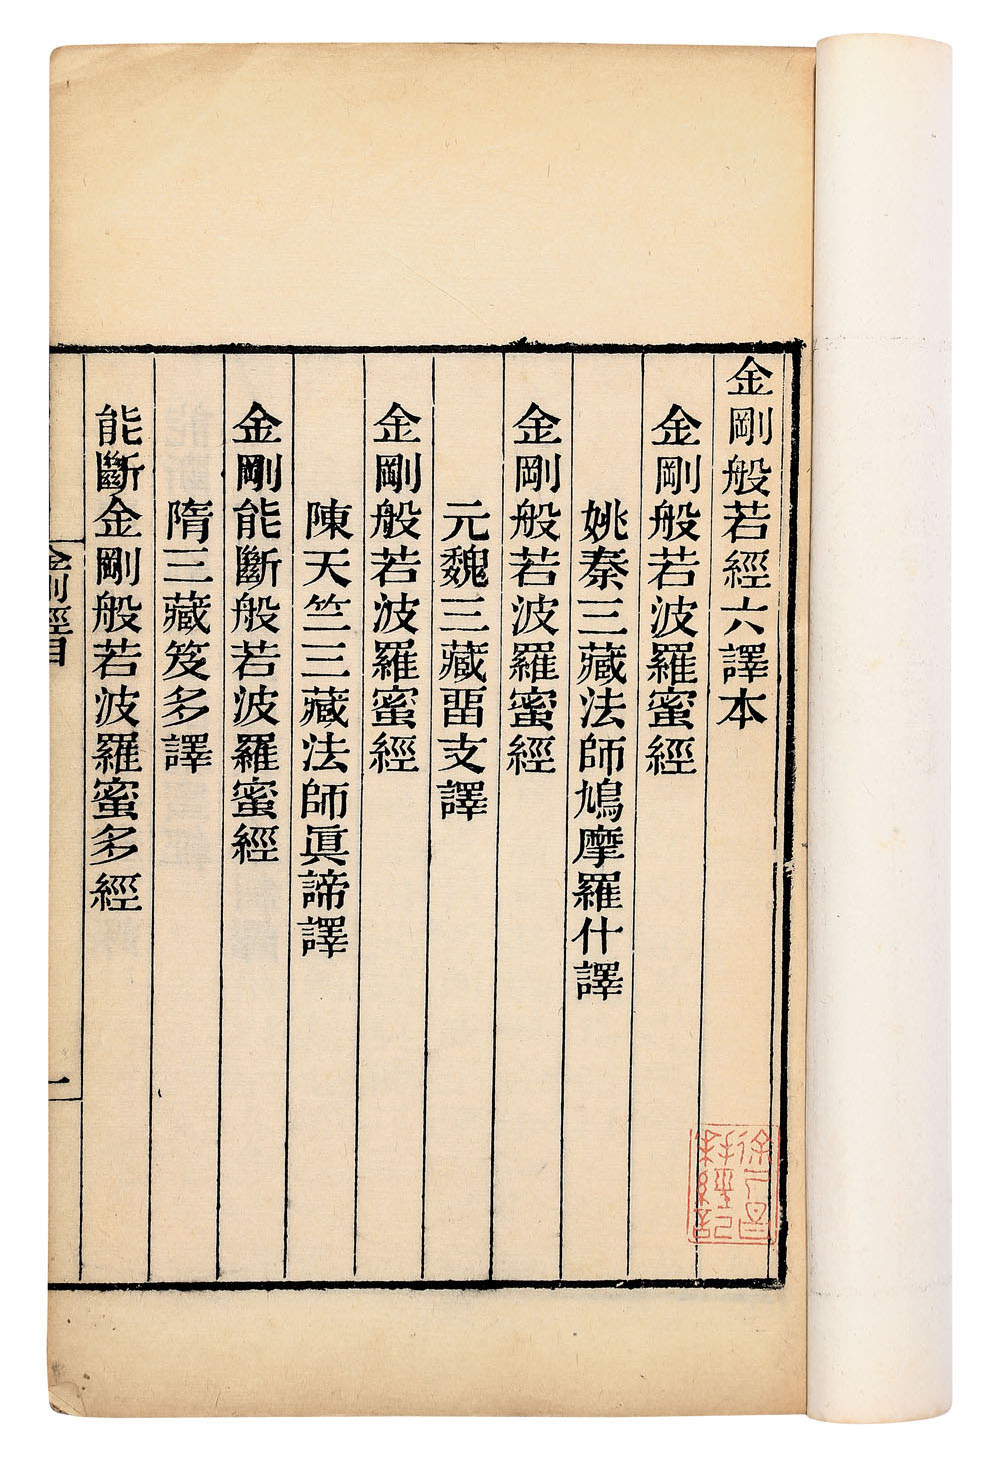 金剛般若經六譯本
金剛般若波羅蜜經
姚秦三藏法師鳩摩羅什譯
金剛般若波羅蜜經
元魏三藏畱支譯
金剛般若波羅蜜經
陳天竺三藏法師眞諦譯
金剛能斷般若波羅蜜經
隋三藏笈多譯
能斷金剛般若波羅蜜多經
金剛經目
一